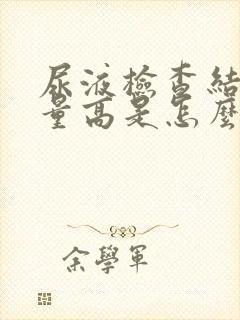 尿液檢查結
量高是怎麼
余學軍